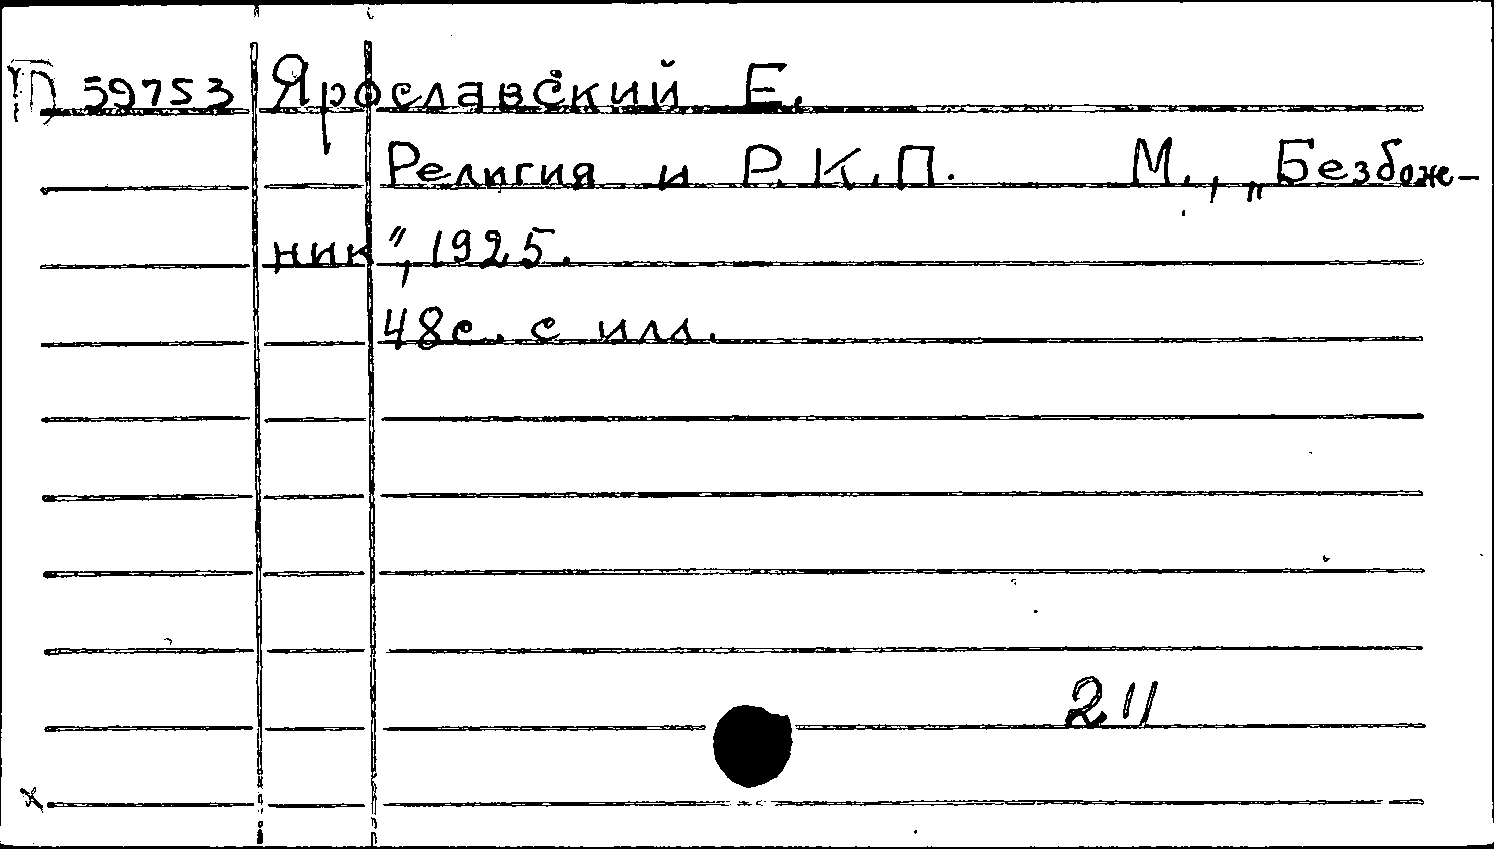 П 59753 Ярославский Е.
Религия и Р.К.П. М., „Безбож-
ник", 1925.
48с. с илл.
211
х